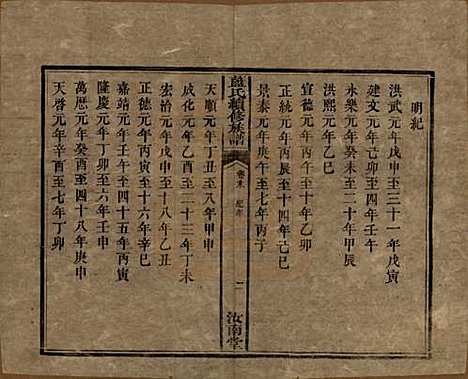 明紀
洪武元年戊申至三十一年戊寅
建文元年己卯至四年壬午
永樂元年癸未至二十年甲辰
洪熙元年乙巳
宣德元年丙午至十年乙卯
正統元年丙辰至十四年己巳
景泰元年庚午至七年丙子
藍氏續修族譜
卷末
紀年
二
汝南堂
天順元年丁丑至八年甲申
成化元年乙酉至二十三年丁未
宏治元年戊申至十八年乙丑
正德元年丙寅至十六年辛巳
嘉靖元年壬午至四十五年丙寅
隆慶元年丁卯至六年壬申
萬歷元年癸酉至四十八年庚申
天啓元年辛酉至七年丁卯